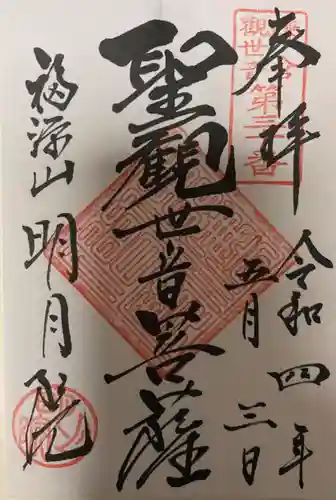 奉拝
令和四年
五月三日
聖観世音菩薩
福源山明月院
観世音第三十番